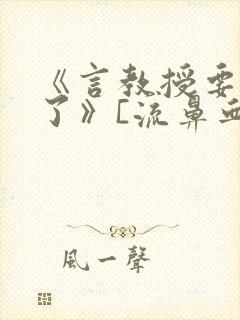 《言教授要
了》[流鼻血
風一聲